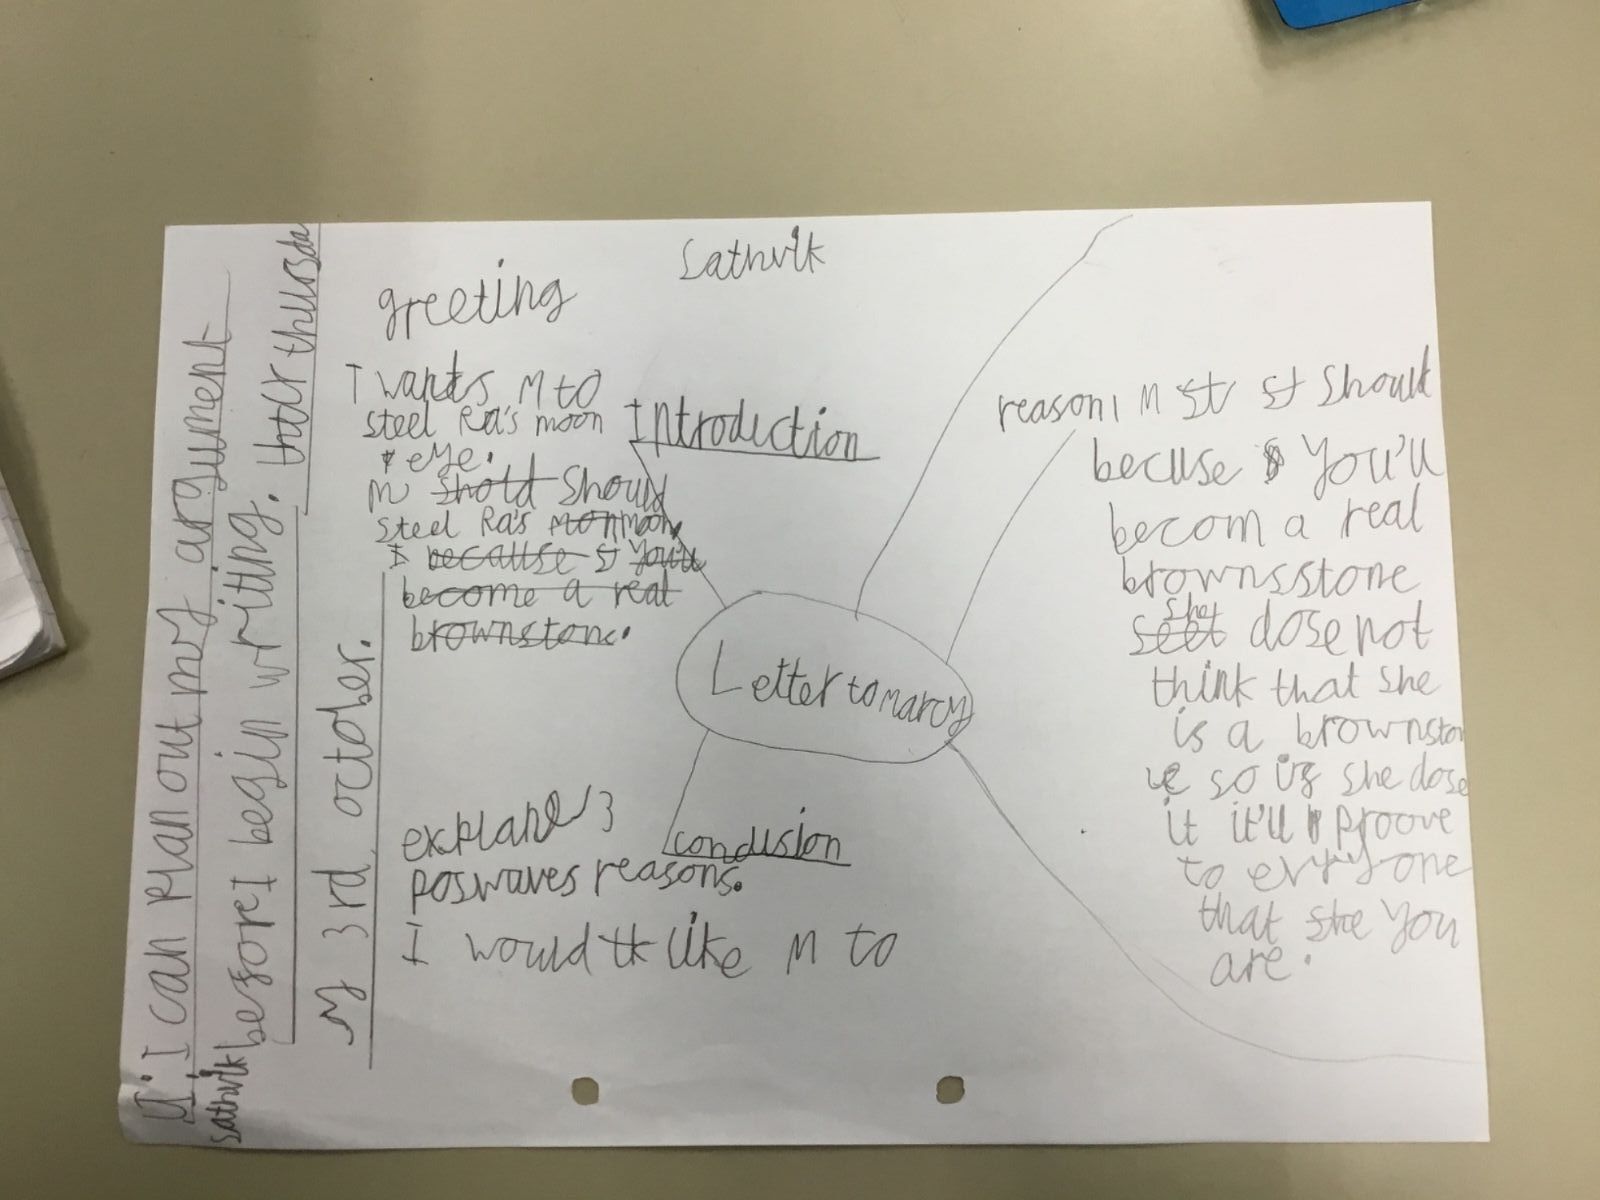 LI: I can plan out my argument
sathvik before I begin writing. thur thursda
y 3rd october.
Sathvik
greeting
I wants M to
steel Ra's moon
eye.
M shold should
steel Ra's mon moon
I because st you'll
become a real
brownstone.
Introduction
Letter to marcy
reason 1 M st st should
becuse you'll
becom a real
brownsstone
seet she dose not
think that she
is a brownston
e so if she dose
it it'll proove
to everyone
that she you
are.
conclusion
explane 3
poswaves reasons.
I would tk like M to